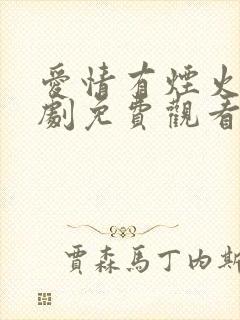 愛情有煙火
劇免費觀看
賈森馬丁內斯